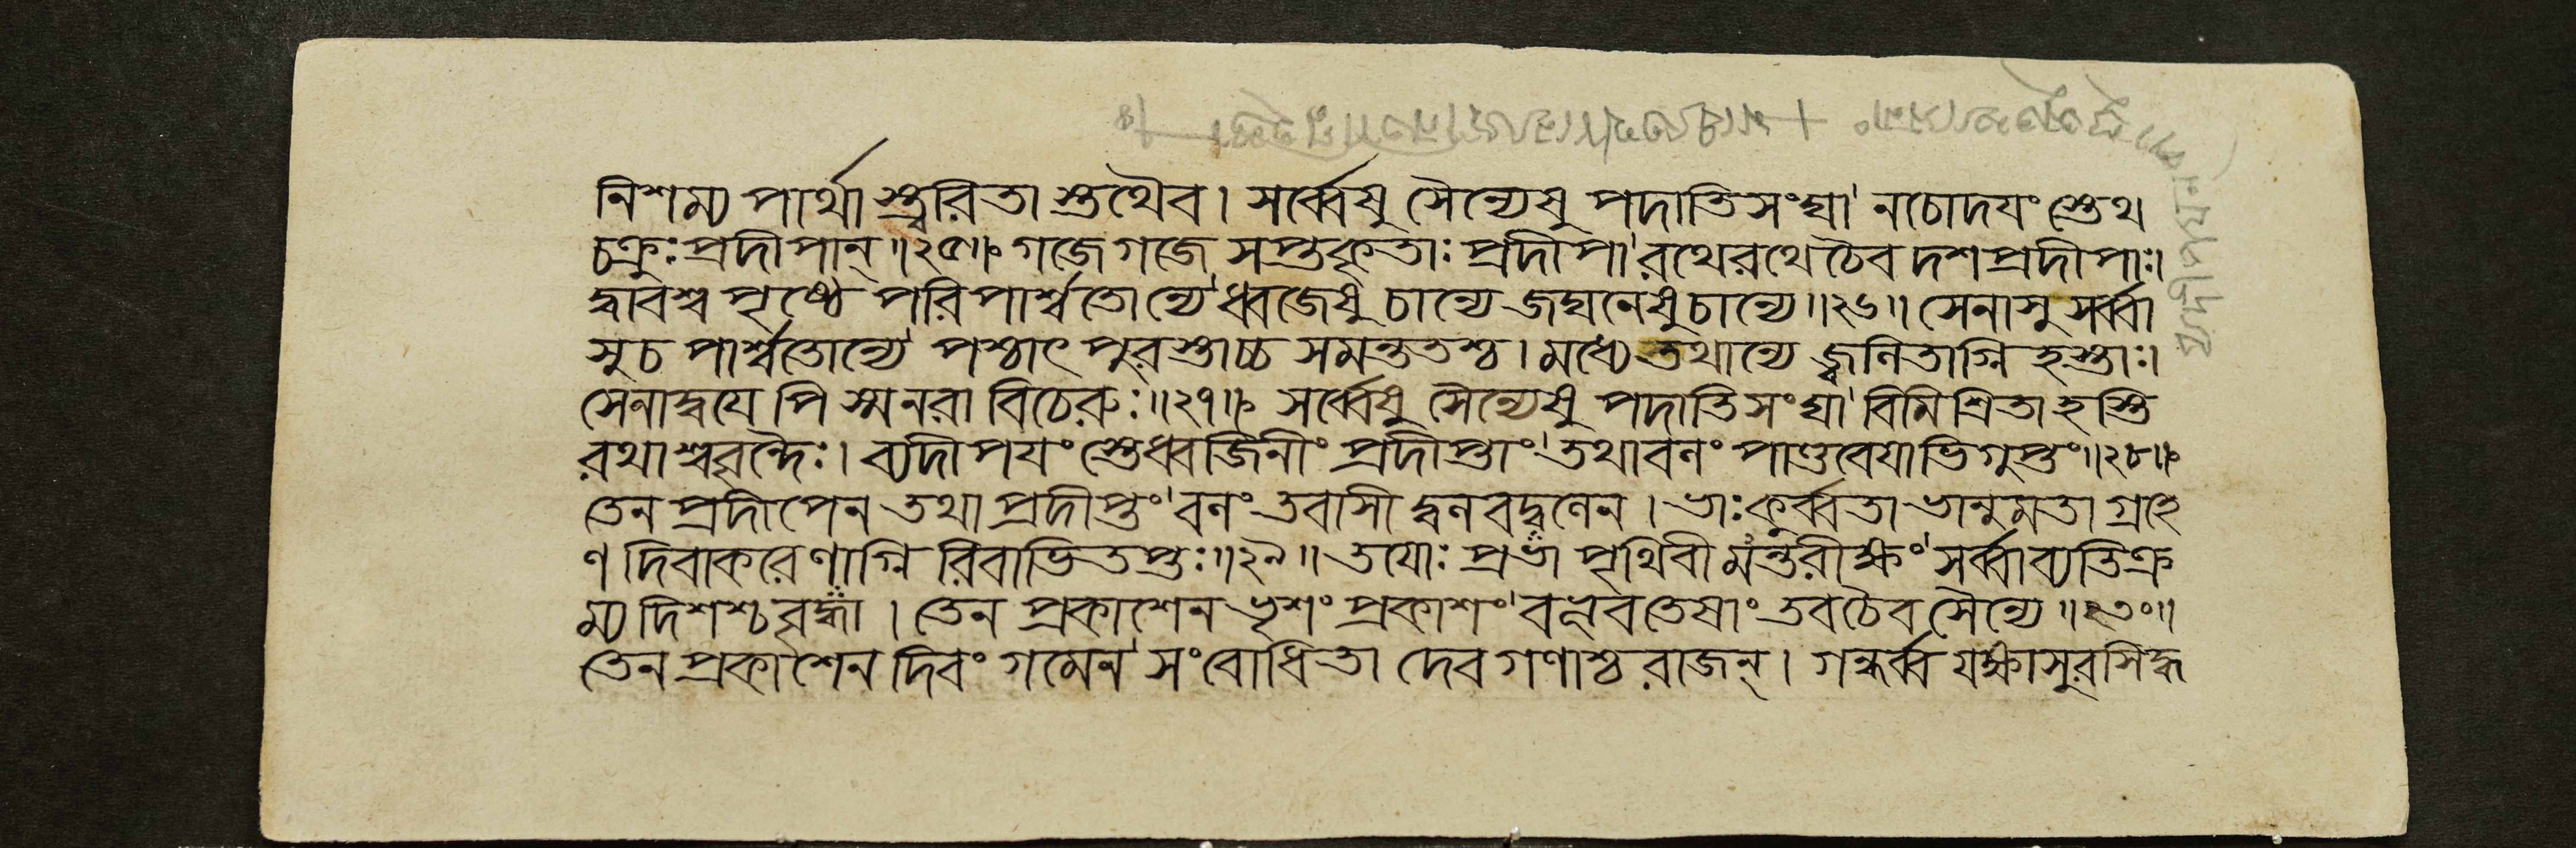 নিশম্য পার্থাস্ত্বরিতাস্তথৈব। সর্ব্বেষু সৈন্যেষু পদাতিসংঘা' নচোদযংস্তেথ
চক্রুঃ প্রদীপান্॥২৫॥ গজে গজে সপ্তকৃতাঃ প্রদীপা' রথেরথে চৈব দশপ্রদীপাঃ।
দ্বাবশ্ব পৃষ্ঠে পরিপার্শ্বতোন্যে' ধ্বজেষু চান্যে জঘনেষু চান্যে॥২৬॥ সেনাসু সর্ব্বা
সু চ পার্শ্বতোন্যে' পশ্চাৎ পুরস্তাচ্চ সমন্ততশ্চ। মধ্যে তথান্যে জ্বলিতাগ্নি হস্তাঃ।
সেনাদ্বযে পি স্ম নরা বিচেরুঃ॥২৭॥ সর্ব্বেষু সৈন্যেষু পদাতিসংঘা' বিমিশ্রিতা হস্তি
রথাশ্ববৃন্দৈঃ। ব্যদীপযংস্তে ধ্বজিনীং প্রদীপ্তাং' তথাবলং পাণ্ডবেযাভিগুপ্তং॥২৮॥
তেন প্রদীপেন তথা প্রদীপ্তং' বলং তবাসী দ্বলবদ্বলেন। ভাঃ কুর্ব্বতা ভানুমতা গ্রহে
ণ দিবাকরেণাগ্নি রিবাভিতপ্তঃ॥২৯॥ তযোঃ প্রভা পৃথিবীমন্তরীক্ষং' সর্ব্বা ব্যতিক্র
ম্য দিশশ্চ বৃদ্ধা। তেন প্রকাশেন ভৃশং প্রকাশং' বভূব তেষাং তব চৈব সৈন্যে॥৩০॥
তেন প্রকাশেন দিবং গমেন' সংবোধিতা দেবগণাশ্চ রাজন্। গন্ধর্ব্ব যক্ষাসুরসিদ্ধ